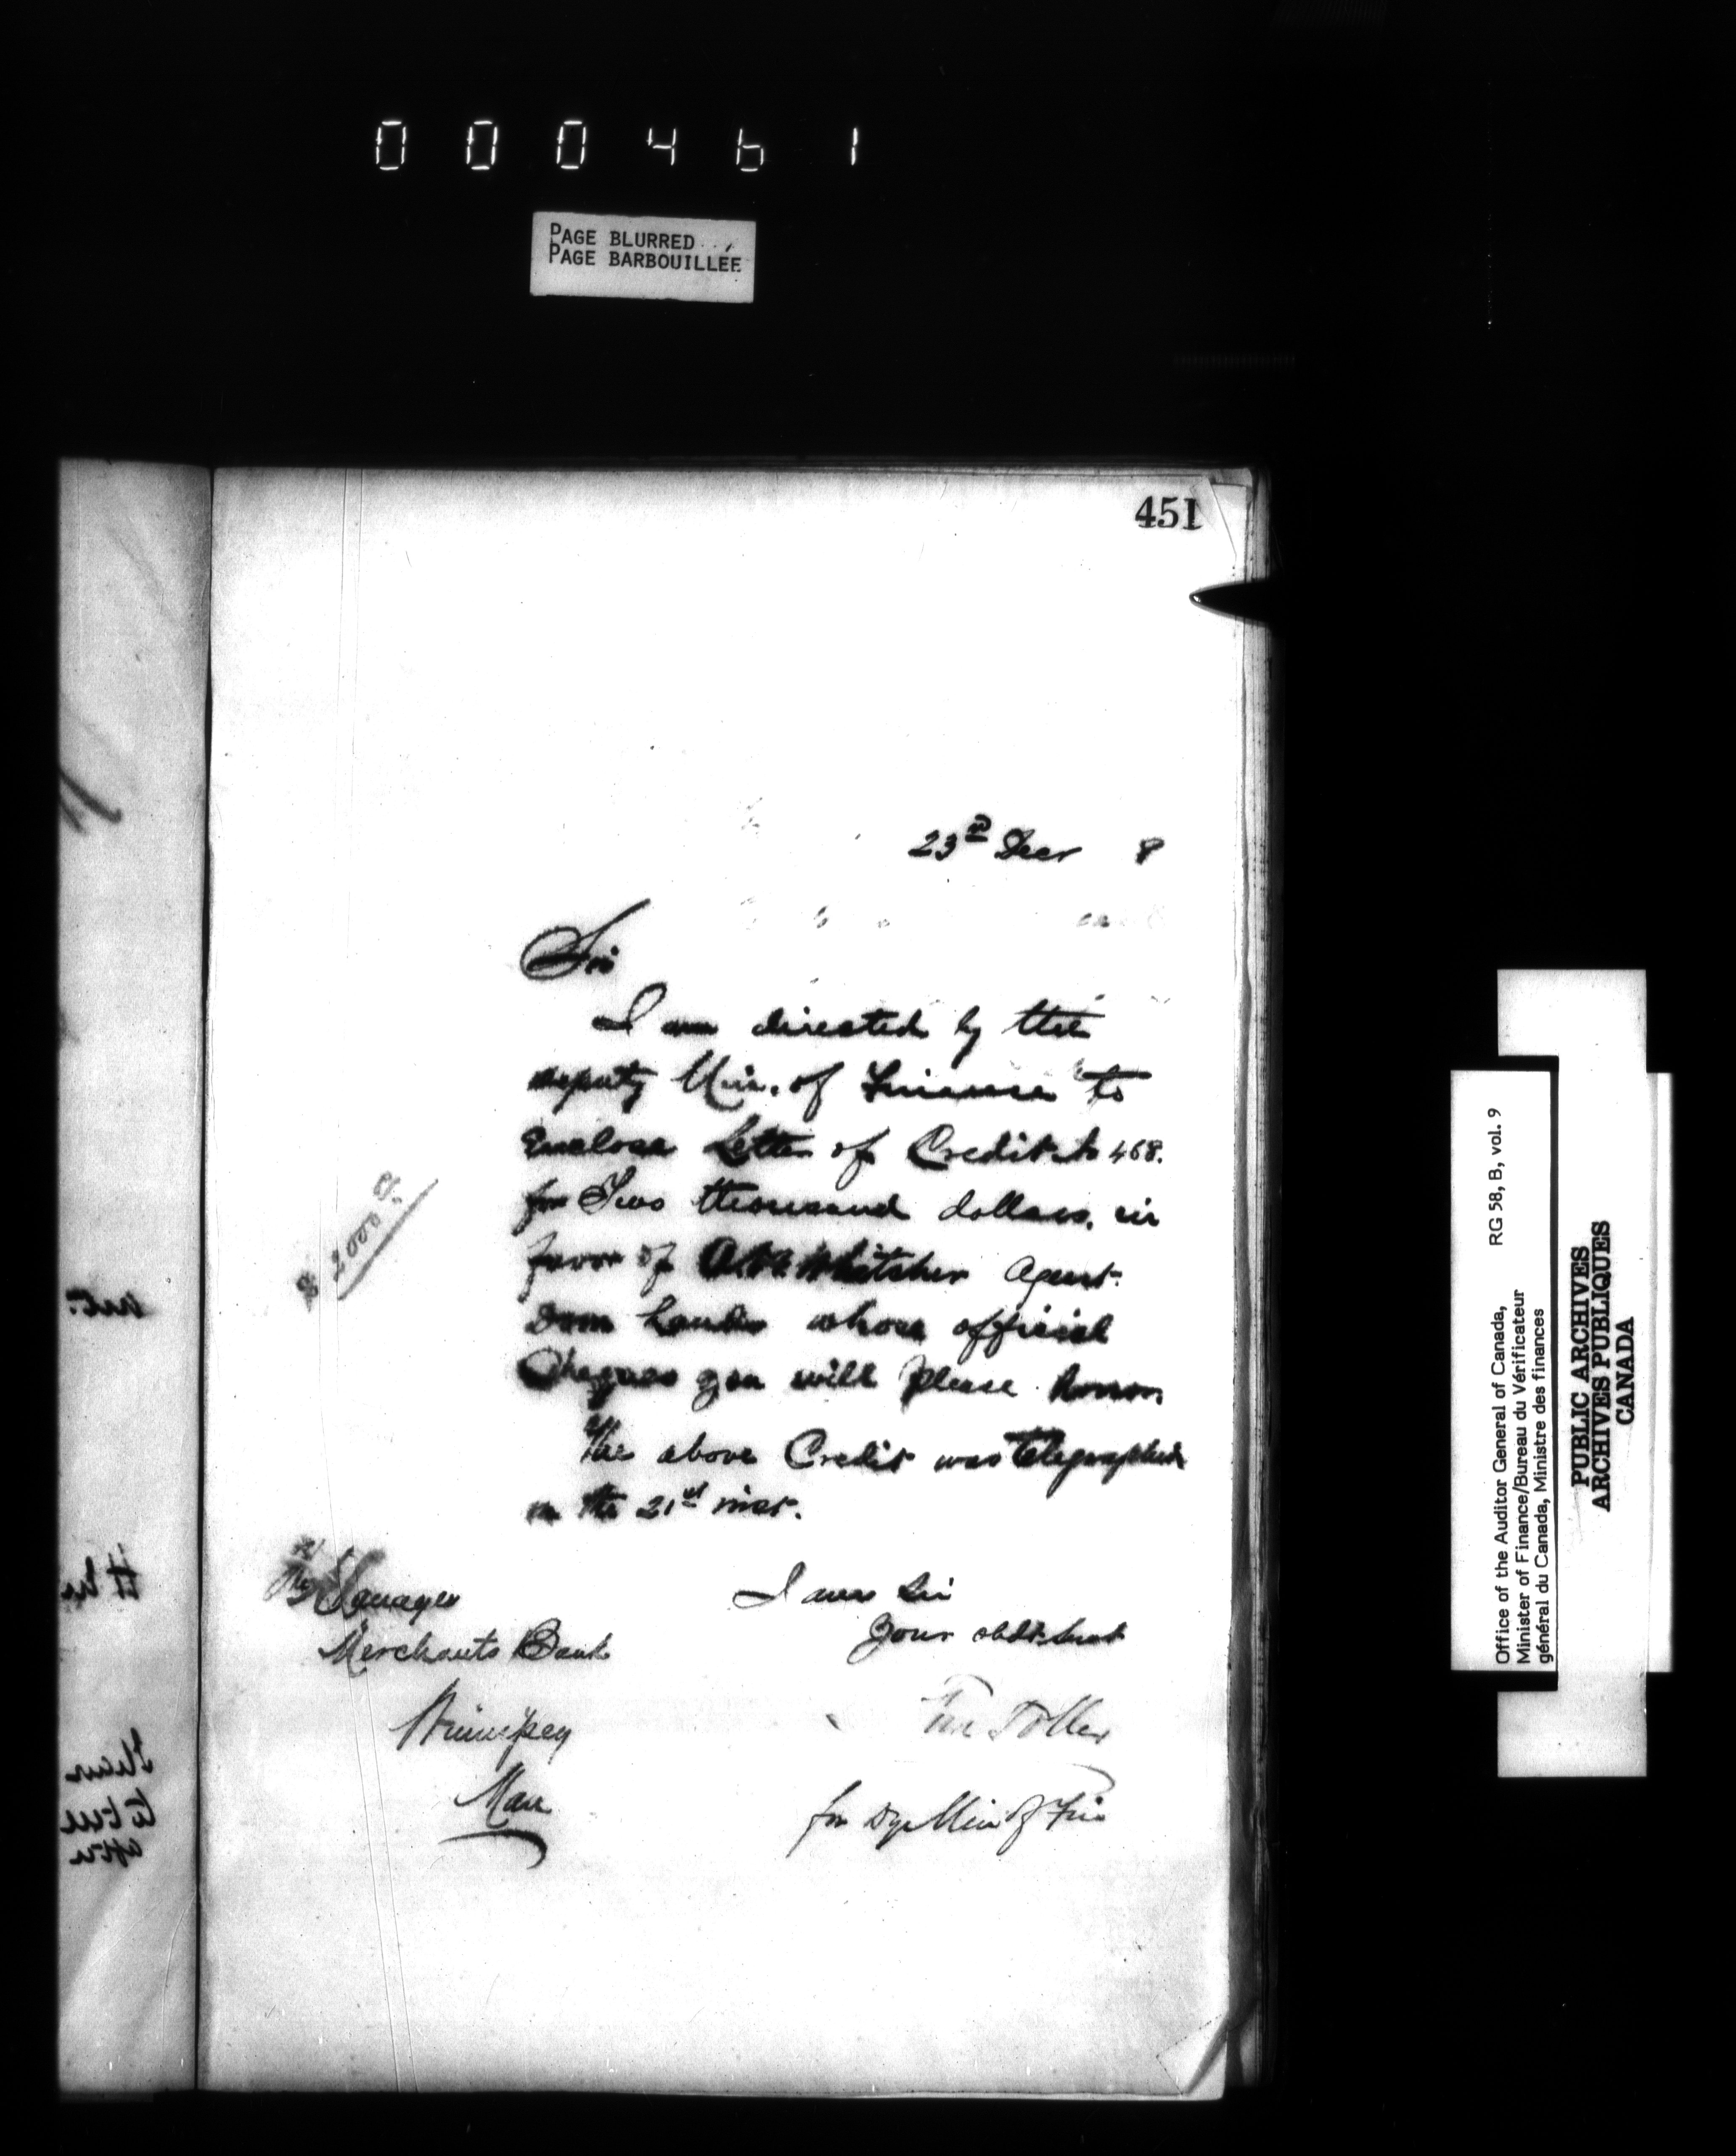 000461
PAGE BLURRED
PAGE BARBOUILLÉE
451
23rd Decr 8
Sir
I am directed by the
deputy Min. of Finance to
Enclose Letter of Credit No 468.
for Two thousand dollars, in
favor of Whitcher Agent.
Dom Lands whose official
Cheques you will please honor.
The above Credit was telegraphed
on the 21st inst.
$ 2000
I am Sir
Your obdt. Servt
Toller
for Dy Min of Fin
The Manager
Merchants Bank
Winnipeg
Man
Office of the Auditor General of Canada, RG 58, B, vol. 9
Minister of Finance/Bureau du Vérificateur
général du Canada, Ministre des finances
PUBLIC ARCHIVES
ARCHIVES PUBLIQUES
CANADA